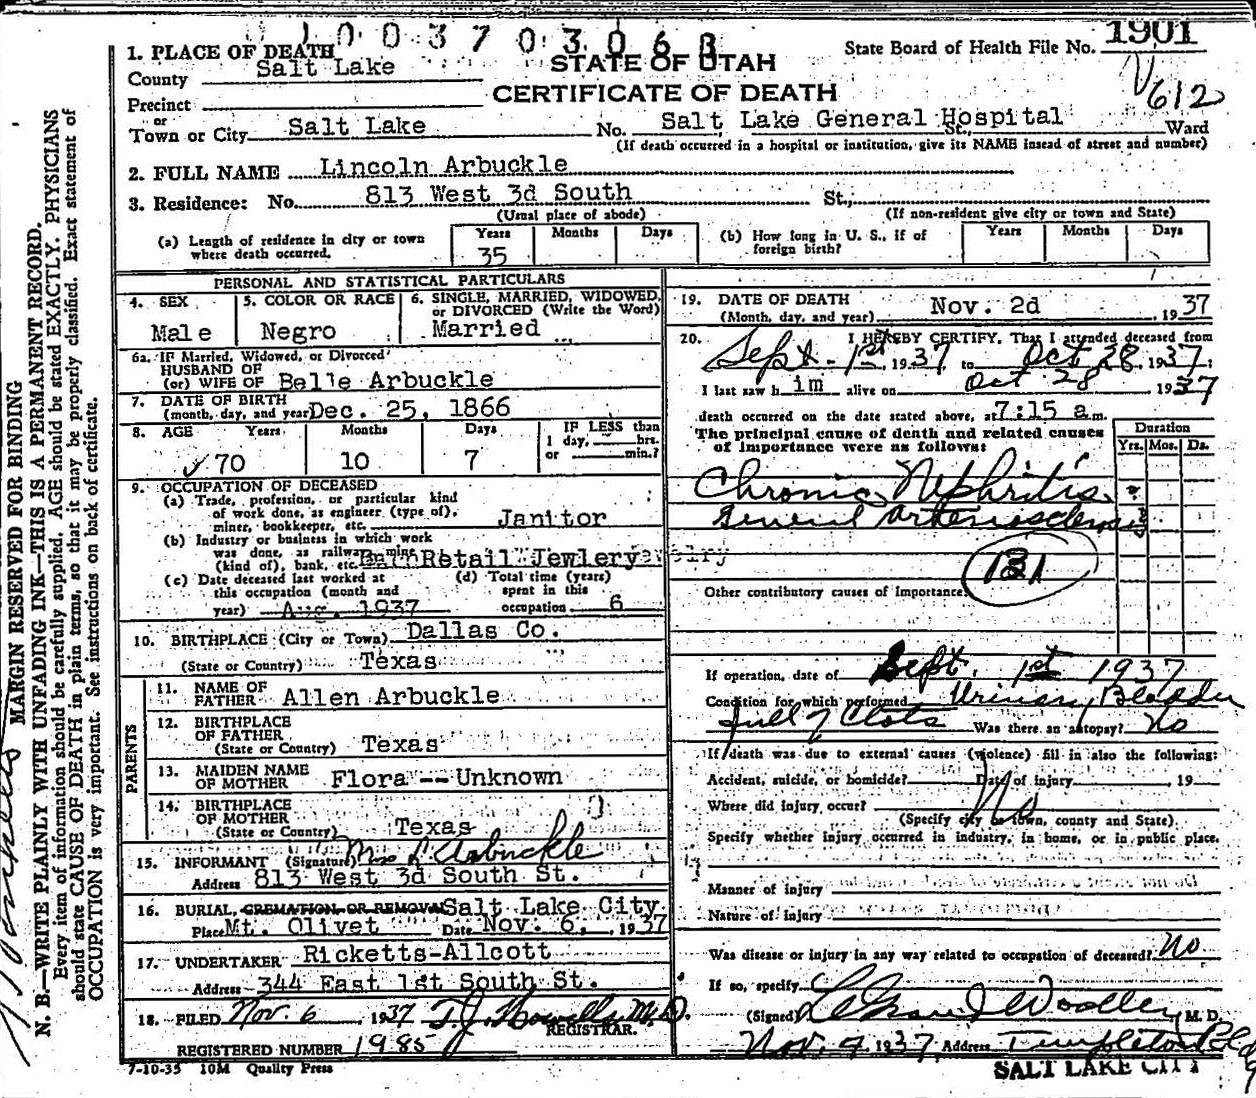 1 0 0 3 7 0 3 0 6 8
1. PLACE OF DEATH
STATE OF UTAH
State Board of Health File No. 1901
County Salt Lake
CERTIFICATE OF DEATH
612
Precinct
or
Town or City Salt Lake No. Salt Lake General Hospital St., Ward
(If death occurred in a hospital or institution, give its NAME insead of street and number)
2. FULL NAME Lincoln Arbuckle
3. Residence: No. 813 West 3d South St.,
(Usual place of abode) (If non-resident give city or town and State)
(a) Length of residence in city or town where death occurred.
Years Months Days
35
(b) How long in U. S., if of foreign birth?
Years Months Days
PERSONAL AND STATISTICAL PARTICULARS
4. SEX
Male
5. COLOR OR RACE
Negro
6. SINGLE, MARRIED, WIDOWED, or DIVORCED (Write the Word)
Married
6a. IF Married, Widowed, or Divorced
HUSBAND OF
(or) WIFE OF Belle Arbuckle
7. DATE OF BIRTH
(month, day, and year) Dec. 25, 1866
8. AGE Years Months Days IF LESS than
1 day, hrs.
or min.?
70 10 7
9. OCCUPATION OF DECEASED
(a) Trade, profession, or particular kind
of work done, as engineer (type of),
miner, bookkeeper, etc. Janitor
(b) Industry or business in which work
was done, as railway, mine
(kind of), bank, etc. Retail Jewlery
(c) Date deceased last worked at
this occupation (month and
year) Aug. 1937
(d) Total time (years)
spent in this
occupation 6
10. BIRTHPLACE (City or Town) Dallas Co.
(State or Country) Texas
PARENTS
11. NAME OF
FATHER Allen Arbuckle
12. BIRTHPLACE
OF FATHER
(State or Country) Texas
13. MAIDEN NAME
OF MOTHER Flora -- Unknown
14. BIRTHPLACE
OF MOTHER
(State or Country) Texas
15. INFORMANT (Signature) Mrs L Arbuckle
Address 813 West 3d South St.
16. BURIAL, CREMATION OR REMOVAL Salt Lake City
Place Mt. Olivet Date Nov. 6, 1937
17. UNDERTAKER Ricketts-Allcott
Address 344 East 1st South St.
18. FILED Nov. 6 1937 T.J. Howells M.D.
REGISTRAR.
REGISTERED NUMBER 1985
7-10-35 10M Quality Press
19. DATE OF DEATH
(Month, day, and year) Nov. 2d 1937
20. I HEREBY CERTIFY, That I attended deceased from
Sept. 1st 1937 to Oct 28, 1937;
I last saw him alive on Oct 28 1937
death occurred on the date stated above, at 7:15 a.m.
The principal cause of death and related causes
of importance were as follows:
Duration
Yrs. Mos. Ds.
Chronic Nephritis ?
General Arteriosclerosis
131
Other contributory causes of Importance:
If operation, date of Sept. 1st 1937
Condition for which performed Urinary Bladder
full of Clots Was there an autopsy? No
If death was due to external causes (violence) fill in also the following:
Accident, suicide, or homicide? Date of injury 19
Where did injury occur? No
(Specify city or town, county and State)
Specify whether injury occurred in industry, in home, or in public place.
Manner of injury
Nature of injury
Was disease or injury in any way related to occupation of deceased? No
If so, specify
(Signed) LeGrand Woolley, M. D.
Nov. 9 1937, Address Templeton Bldg
SALT LAKE CITY
MARGIN RESERVED FOR BINDING
N. B.—WRITE PLAINLY WITH UNFADING INK—THIS IS A PERMANENT RECORD.
Every item of information should be carefully supplied. AGE should be stated EXACTLY. PHYSICIANS
should state CAUSE OF DEATH in plain terms, so that it may be properly classified. Exact statement of
OCCUPATION is very important. See instructions on back of certificate.